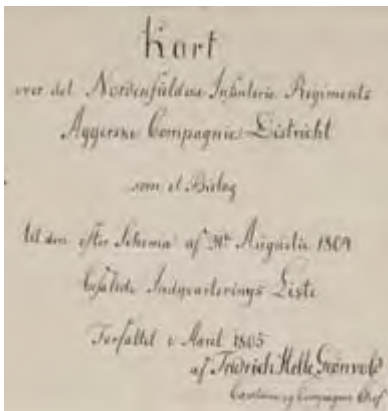 Kart
over det Nordenfieldske Infanterie Regiments
Aggerske Compagnie District
som et Bielag
til den efter Schema af 31te Augustii 1804
befalede Indqvarterings Liste
Forfattet i April 1805
af Fridrich Helle Grønvold
Capitaine og Compagnie Chef